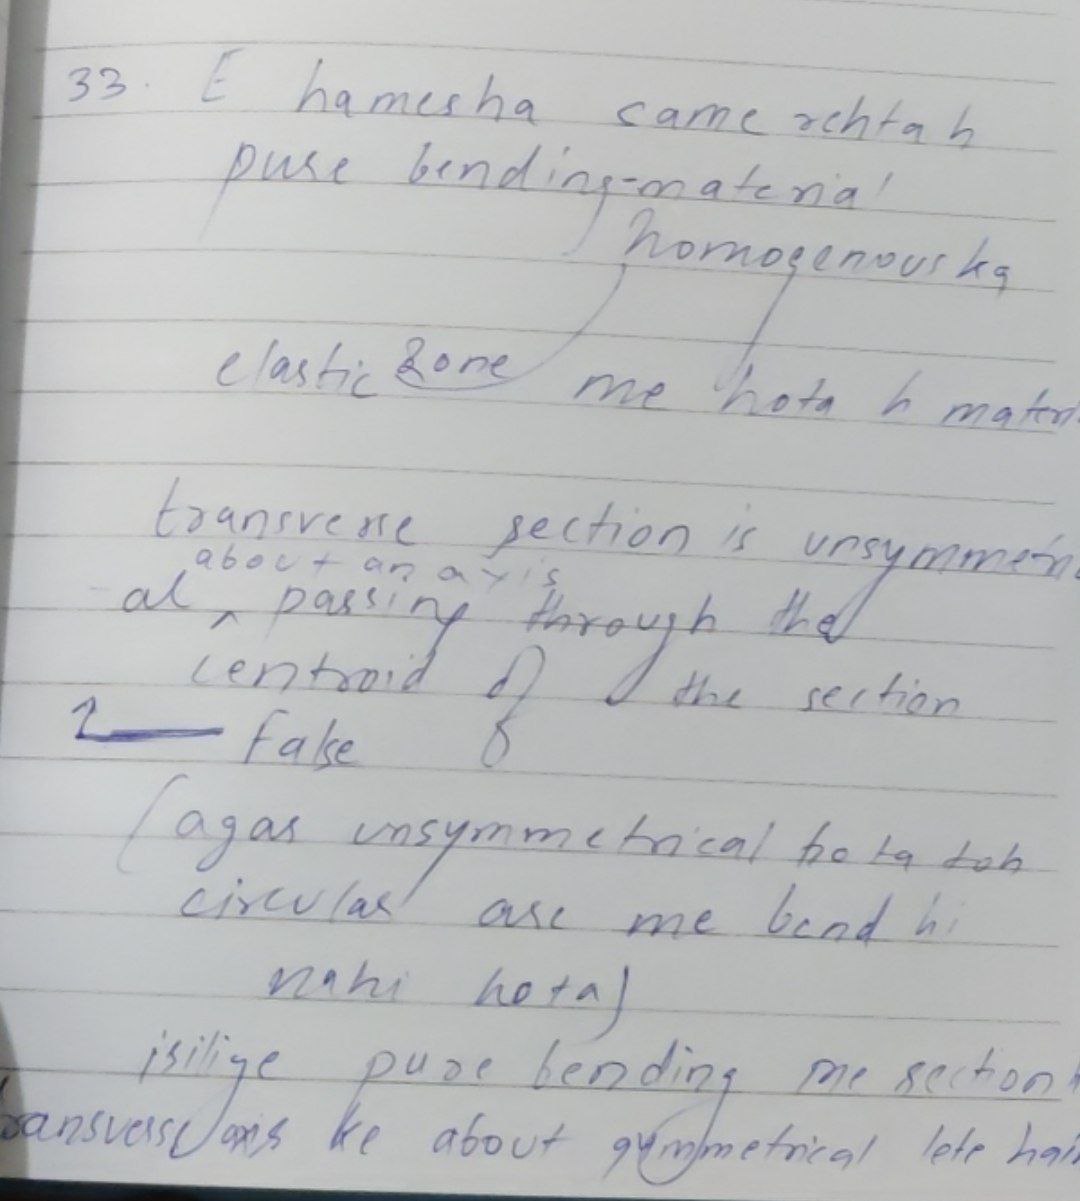 33. E hamesha same rehta h
pure bending-material
homogenous ka
elastic zone me hota h materi
transverse section is unsymmetri
about an axis
al ^ passing through the
centroid of the section
false
(agar unsymmetrical hota toh
circular arc me bend hi
nahi hota)
isiliye pure bending me section
transverse axis ke about symmetrical lete hain